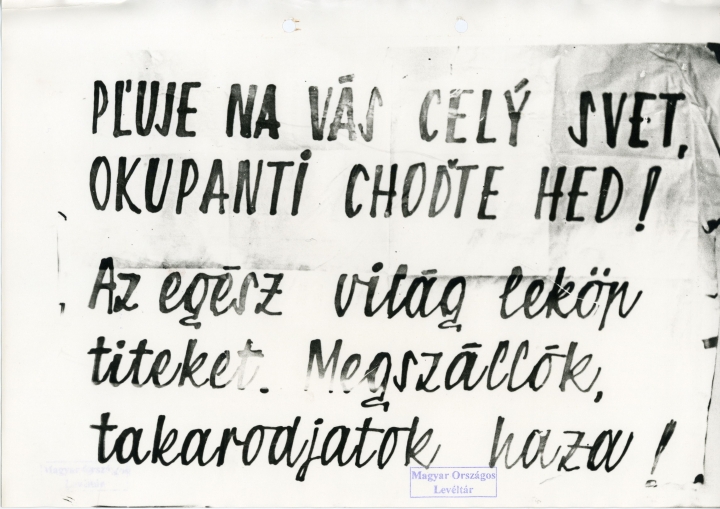 PĽUJE NA VÁS CELÝ SVET,
OKUPANTI CHOĎTE HED!
Az egész világ leköp
titeket. Megszállók,
takarodjatok haza!
Magyar Országos
Levéltár
Magyar Országos
Levéltár